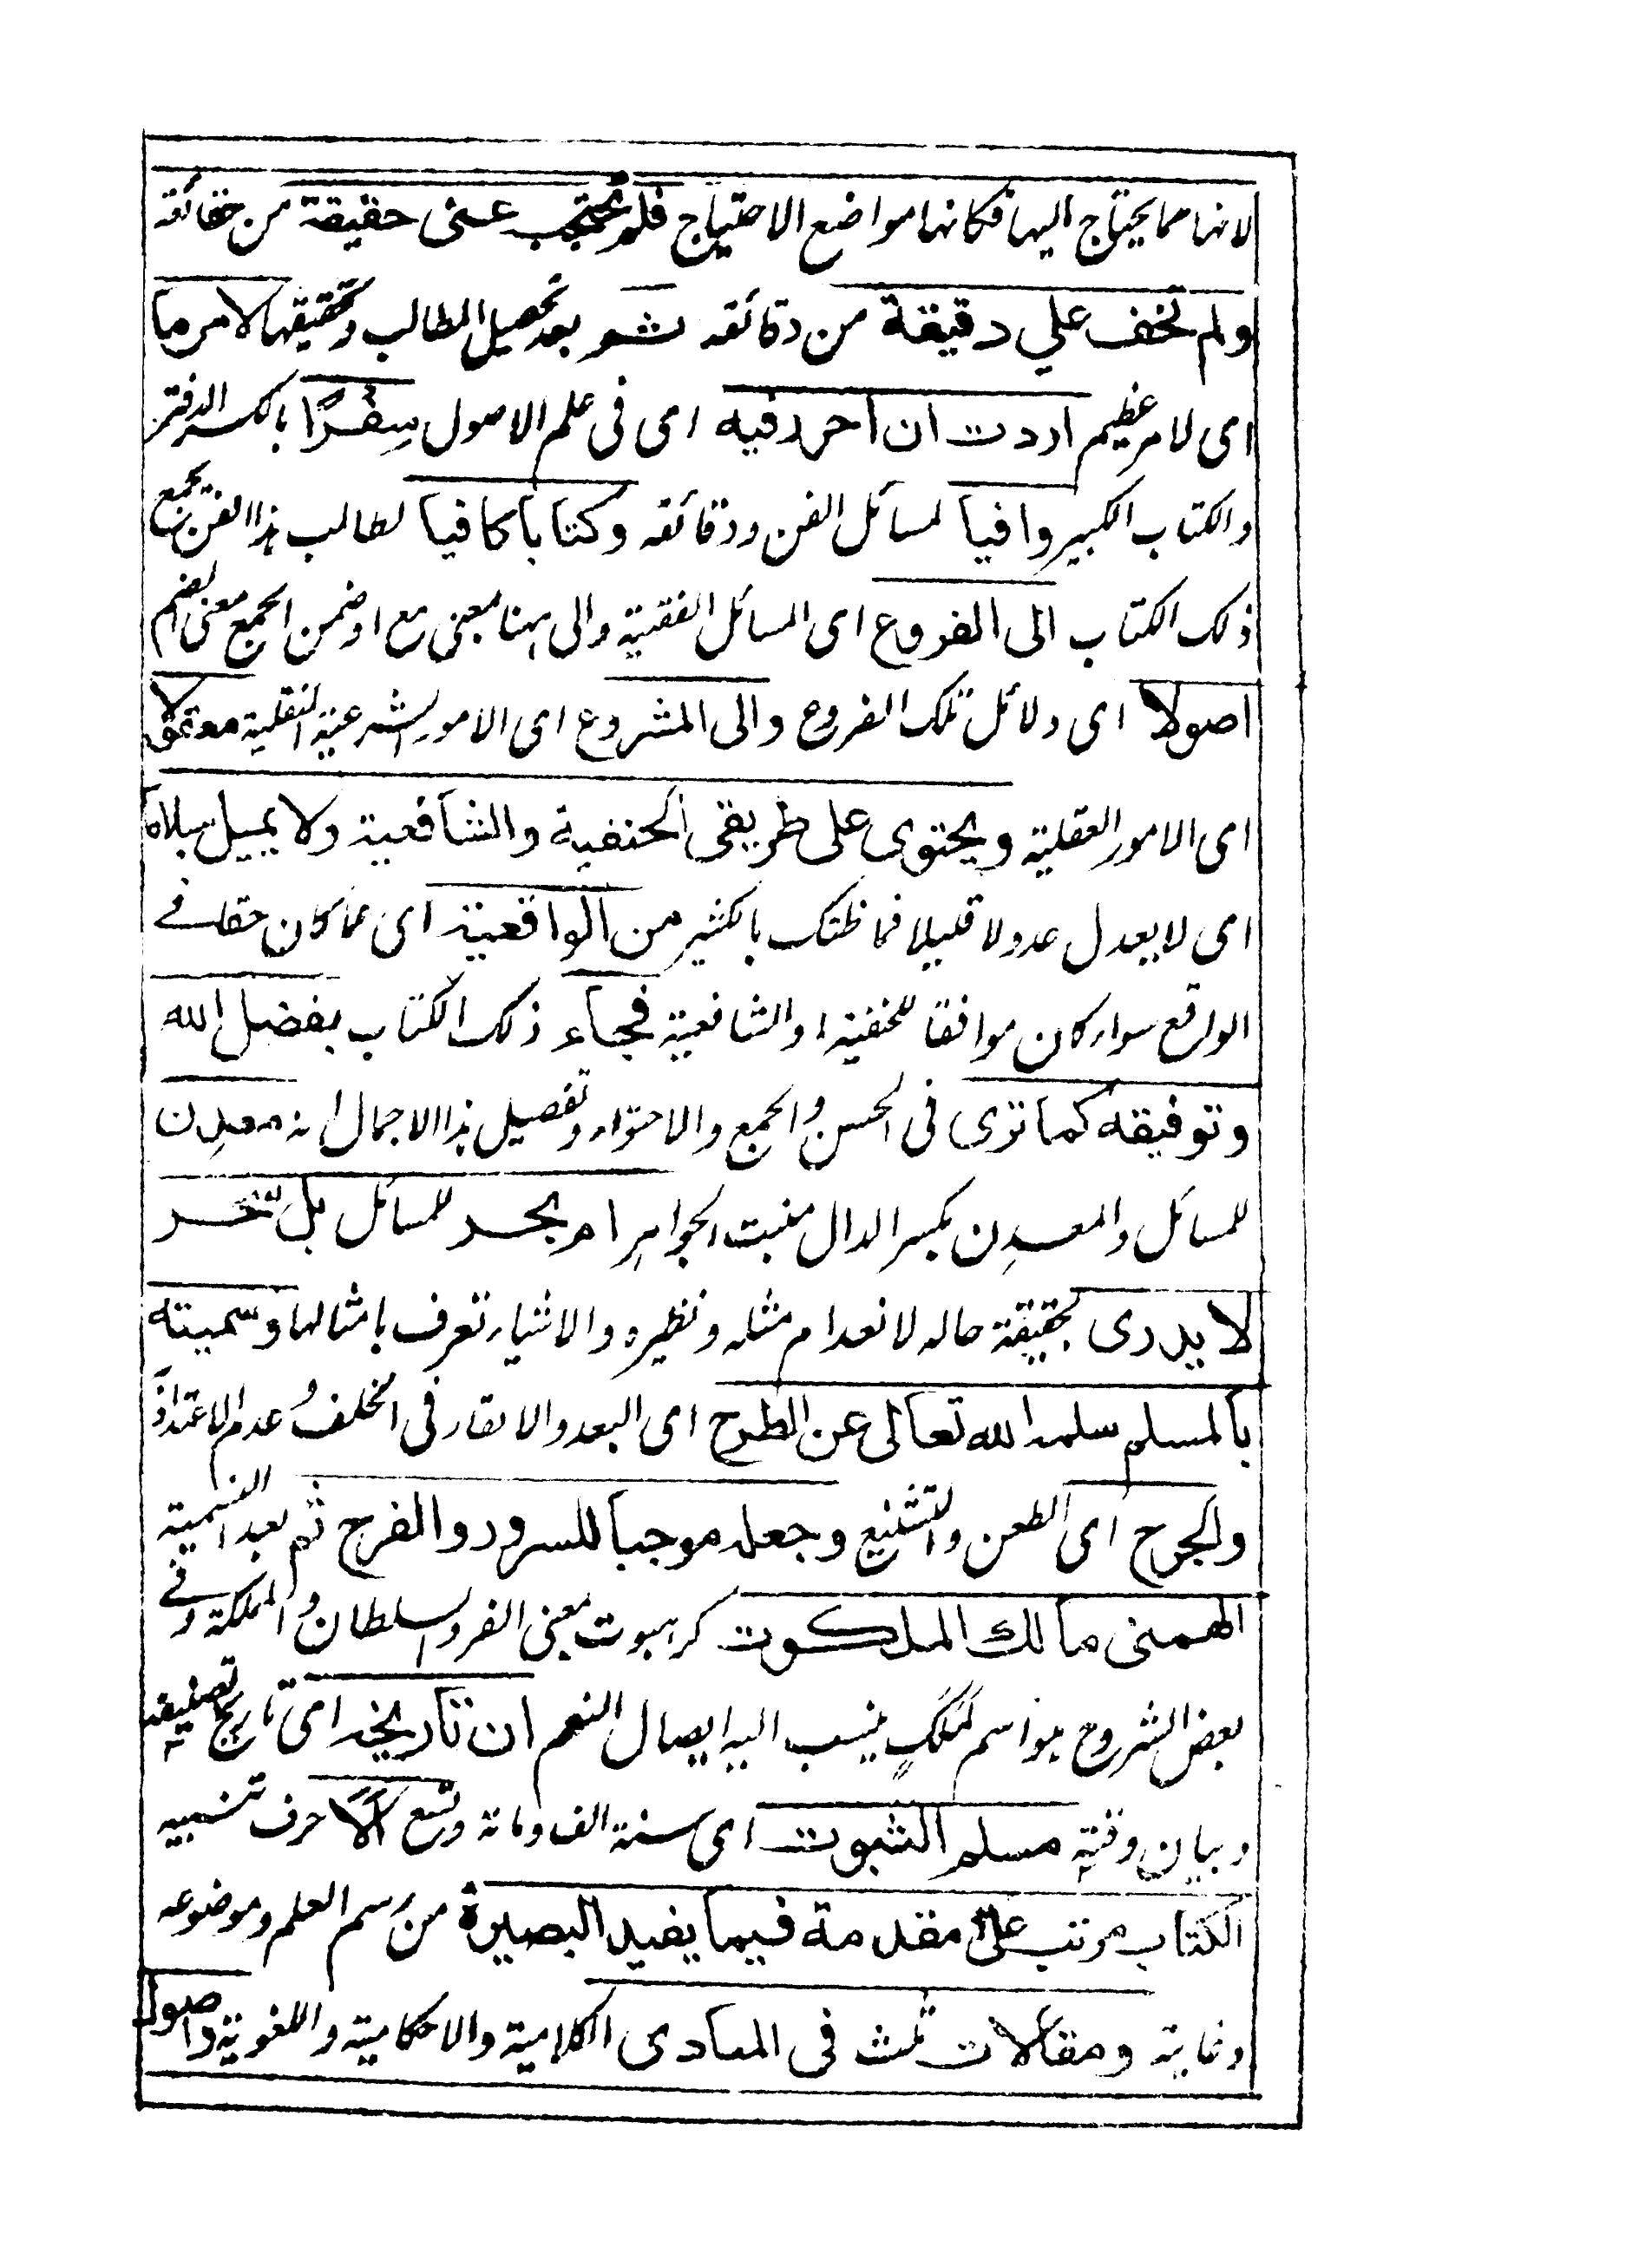 لانها مما يحتاج اليها فكانها مواضع الاحتياج فلم يحتجب عنى حقيقة من حقائقه
ولم تخف علي دقيقة من دقائقه ثم بعد تحصيل المطالب وتحقيقها لامر ما
اى لامر عظيم اردت ان احرر فيه اى فى علم الاصول سِفْرًا بالكسر الدفتر
والكتاب الكبير وافيا لمسائل الفن ودقائقه وكتابا كافيا لطالب هذا الفن يجمع
ذلك الكتاب الى الفروع اى المسائل الفقهية والى ههنا بمعنى مع او ضمن الجمع معنى الضم
اصولا اى دلائل تلك الفروع والى المشروع اى الامور الشرعية النقلية معقولا
اى الامور العقلية ويحتوى على طريقى الحنفية والشافعية ولا يميل ميلا ما
اى لا يعدل عدولا قليلا فما ظنك بالكثير من الواقعية اى عما كان حقا فے
الواقع سواء كان موافقا للحنفية او الشافعية فجاء ذلك الكتاب بفضل الله
وتوفيقه كما ترى فى الحسن والجمع والاحتواء وتفصيل هذا الاجمال انه معدِن
للمسائل والمعدِن بكسر الدال منبت الجواهر ام بحر للمسائل بل سحر
لا يدرى بحقيقة حاله لانعدام مثله ونظيره والاشياء تعرف بامثالها وسميته
بالمسلم سلمه الله تعالى عن الطرح اى البعد والالقاء فى الخلف وعدم الاعتداد
والجرح اى الطعن والتشنيع وجعله موجبا للسرور والفرح ثم بعد التسمية
الهمنى مالك الملكوت كرهبوت بمعنى الفر والسلطان والمملكة وفے
بعض الشروح هو اسم لمَلَكٍ ينسب اليه ايصال النعم ان تاريخه اى تاريخ تصنيفه
وبيان وقته مسلم الثبوت اى سنة الف ومائة وتسع اَلَا حرف تنبيه
الكتاب مرتب على مقدمة فيما يفيد البصيرة من رسم العلم وموضوعه
وغايته ومقالات ثلث فى المبادى الكلامية والاحكامية واللغوية واصول